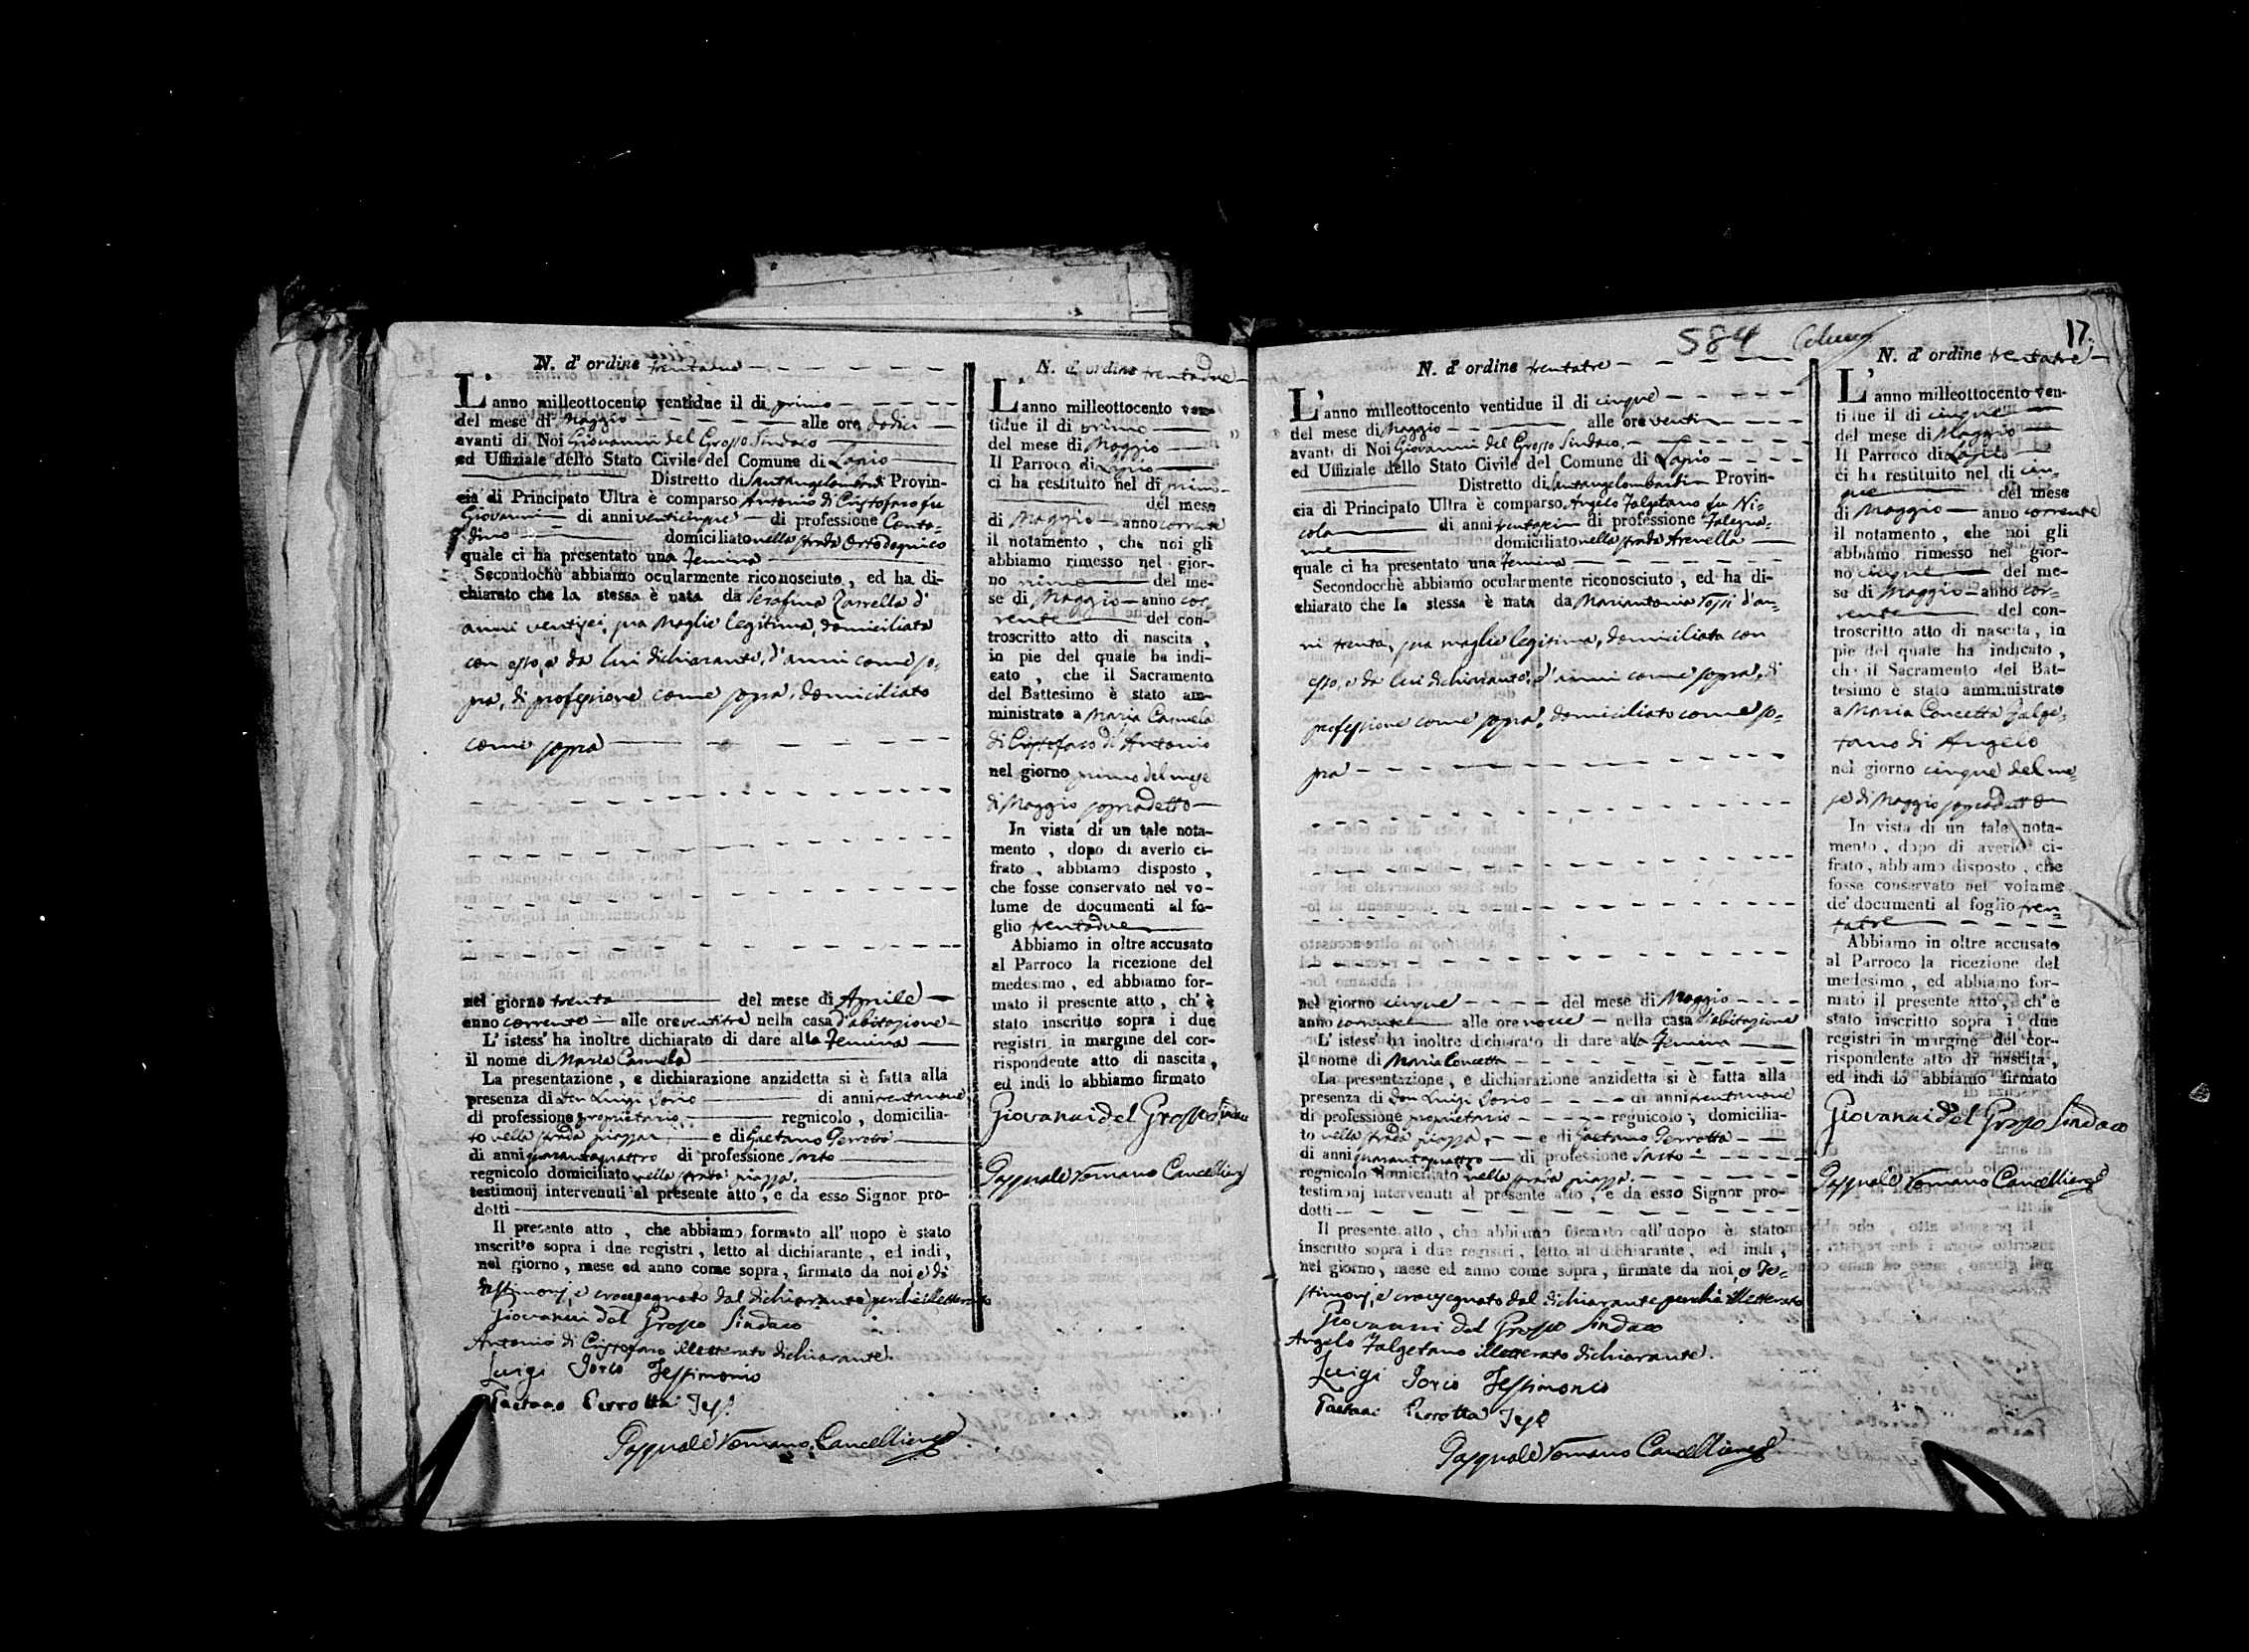 N. d' ordine trentadue
L' anno milleottocento ventidue il di primo
del mese di Maggio alle ore dodici
avanti di Noi Giovanni del Grosso Sindaco
ed Uffiziale dello Stato Civile del Comune di Lapio
Distretto di Santangelombardi Provin-
cia di Principato Ultra è comparso Antonio di Cristofaro fu
Giovanni di anni venticinque di professione Conta-
dino domiciliato nella strada
quale ci ha presentato una Femina
Secondochè abbiamo ocularmente riconosciuto, ed ha di-
chiarato che la stessa è nata da Serafina Zarrella d'
anni ventisei, sua Moglie legitima, domiciliata
con esso, e da lui dichiarante, d'anni come so-
pra, di professione come sopra, domiciliato
come sopra
nel giorno trenta del mese di Aprile
anno corrente alle ore ventitre nella casa d'abitazione
L' istess' ha inoltre dichiarato di dare alla Femina
il nome di Maria Carmela
La presentazione, e dichiarazione anzidetta si è fatta alla
presenza di Don Luigi Iorio di anni trentanove
di professione proprietario, regnicolo, domicilia-
to nella strada piazza, e di Gaetano Perrotta
di anni quarantaquattro di professione Sarto
regnicolo domiciliato nella strada piazza.
testimonj intervenuti al presente atto, e da esso Signor pro-
dotti
Il presente atto, che abbiamo formato all' uopo è stato
inscritto sopra i due registri, letto al dichiarante, ed indi,
nel giorno, mese ed anno come sopra, firmato da noi, e di
testimonj, e crocesegnato dal dichiarante perchè illetterato
Giovanni del Grosso Sindaco
Antonio di Cristofaro illetterato dichiarante.
Luigi Iorio Testimonio
Gaetano Perrotta Test.
Pasquale Romano Cancelliere
N. d' ordine trentadue
L' anno milleottocento ven-
tidue il di primo
del mese di Maggio
Il Parroco di Lapio
ci ha restituito nel di primo
del mese
di Maggio anno corrente
il notamento, che noi gli
abbiamo rimesso nel gior-
no primo del me-
se di Maggio anno cor-
rente del con-
troscritto atto di nascita,
in pie del quale ha indi-
cato, che il Sacramento
del Battesimo è stato am-
ministrato a Maria Carmela
di Cristofaro di Antonio
nel giorno primo del mese
di Maggio sopradetto
In vista di un tale nota-
mento, dopo di averlo ci-
frato, abbiamo disposto,
che fosse conservato nel vo-
lume de documenti al fo-
glio trentadue
Abbiamo in oltre accusato
al Parroco la ricezione del
medesimo, ed abbiamo for-
mato il presente atto, ch' è
stato inscritto sopra i due
registri in margine del cor-
rispondente atto di nascita,
ed indi lo abbiamo firmato
Giovanni del Grosso Sindaco
Pasquale Romano Cancelliere
584
17
N. d' ordine trentatre
L' anno milleottocento ventidue il di cinque
del mese di Maggio alle ore venti
avanti di Noi Giovanni del Grosso Sindaco,
ed Uffiziale dello Stato Civile del Comune di Lapio
Distretto di Santangelombardi Provin-
cia di Principato Ultra è comparso Angelo Falzetano fu Ni-
cola di anni di professione Falegna-
me domiciliato nella strada Arenella
quale ci ha presentato una Femina
Secondocchè abbiamo ocularmente riconosciuto, ed ha di-
chiarato che la stessa è nata da Mariantonia Rossi d'an-
ni trenta, sua moglie legitima, domiciliata con
esso, e da lui dichiarante, d'anni come sopra, di
professione come sopra, domiciliato come so-
pra
nel giorno cinque del mese di Maggio
anno corrente alle ore nove nella casa d'abitazione
L' istess' ha inoltre dichiarato di dare alla Femina
il nome di Maria Concetta
La presentazione, e dichiarazione anzidetta si è fatta alla
presenza di Don Luigi Iorio di anni trentanove
di professione proprietario regnicolo, domicilia-
to nella strada piazza, e di Gaetano Perrotta
di anni quarantaquattro di professione Sarto
regnicolo domiciliato nella strada piazza.
testimonj intervenuti al presente atto, e da esso Signor pro-
dotti
Il presente atto, che abbiamo formato all'uopo è stato
inscritto sopra i due registri, letto al dichiarante, ed indi,
nel giorno, mese ed anno come sopra, firmate da noi, e Te-
stimonj, e crocesegnato dal dichiarante perchè illetterato
Giovanni del Grosso Sindaco
Angelo Falzetano illetterato dichiarante.
Luigi Iorio Testimonio
Gaetano Perrotta Test.
Pasquale Romano Cancelliere
N. d' ordine trentatre
L' anno milleottocento ven-
tidue il di cinque
del mese di Maggio
Il Parroco di Lapio
ci ha restituito nel di cin-
que del mese
di Maggio anno corrente
il notamento, che noi gli
abbiamo rimesso nel gior-
no cinque del me-
se di Maggio anno cor-
rente del con-
troscritto atto di nascita, in
pie del quale ha indicato,
che il Sacramento del Bat-
tesimo è stato amministrato
a Maria Concetta Falze-
tano di Angelo
nel giorno cinque del me-
se di Maggio sopradetto
In vista di un tale nota-
mento, dopo di averlo ci-
frato, abbiamo disposto, che
fosse conservato nel volume
de' documenti al foglio tren-
tatre
Abbiamo in oltre accusato
al Parroco la ricezione del
medesimo, ed abbiamo for-
mato il presente atto, ch' è
stato inscritto sopra i due
registri in margine del cor-
rispondente atto di nascita,
ed indi lo abbiamo firmato
Giovanni del Grosso Sindaco
Pasquale Romano Cancelliere